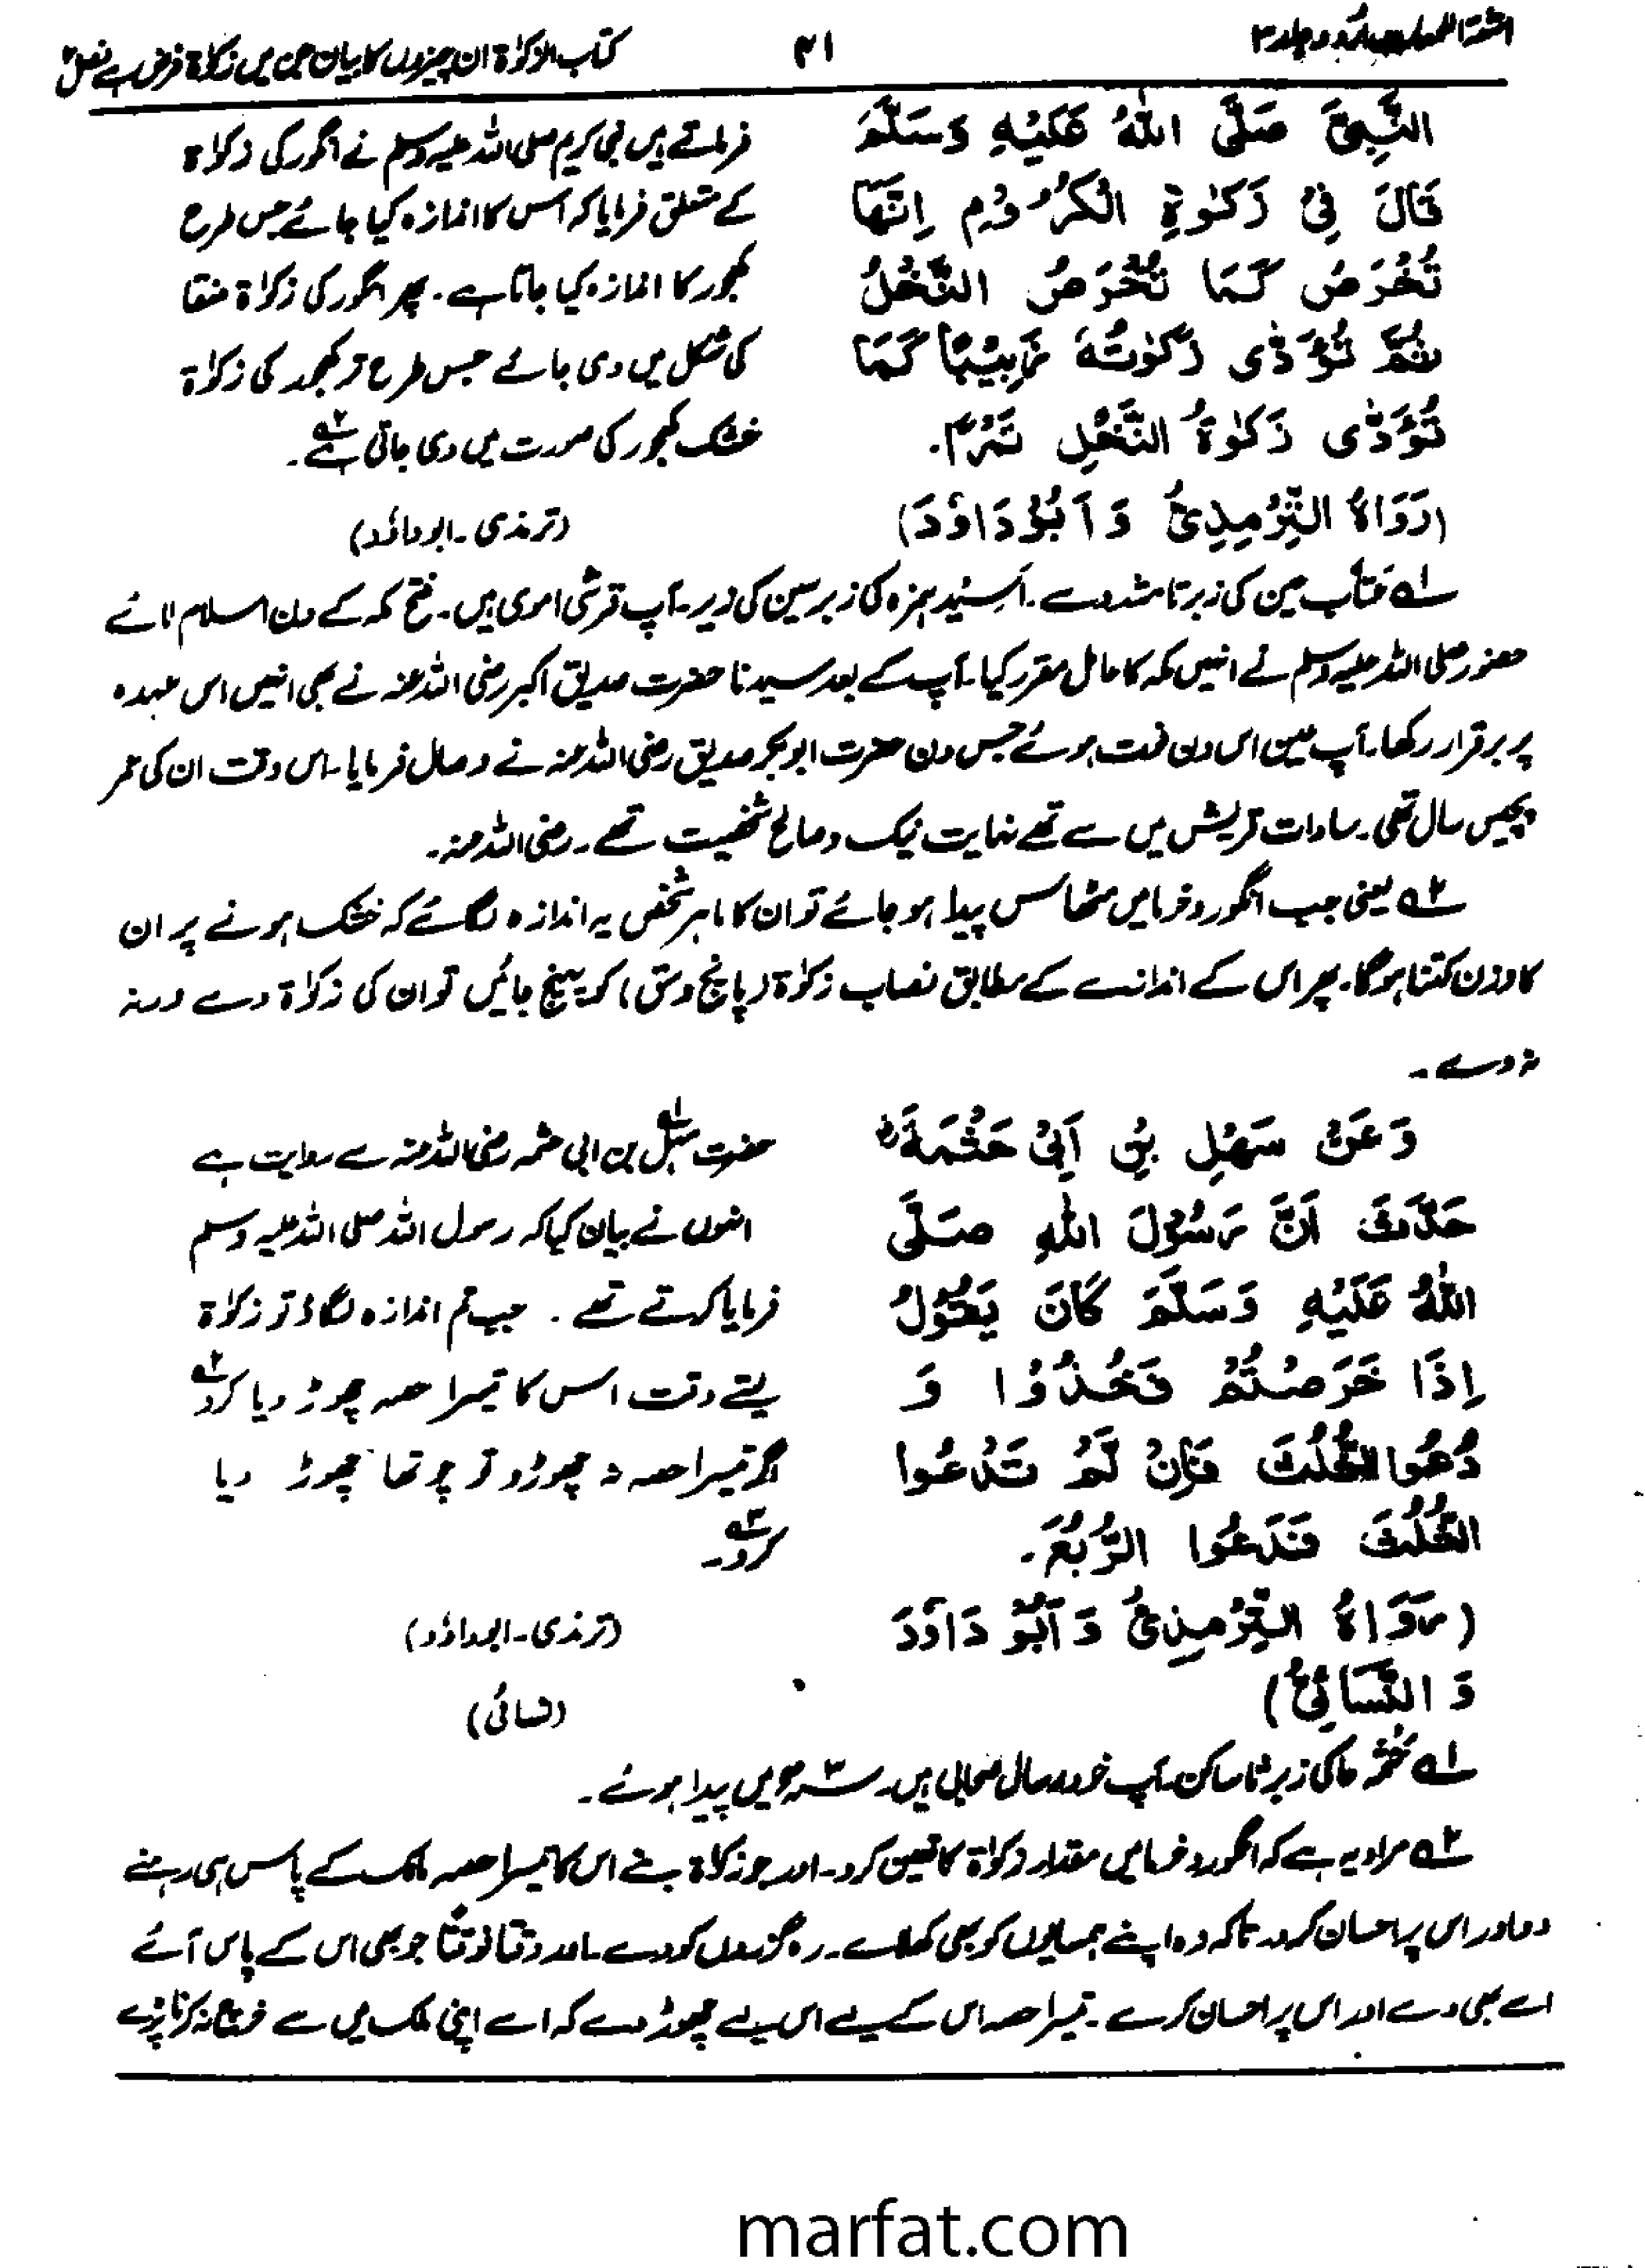 اشعۃ اللمعات اردو جلد ۳
۳۱
کتاب الزکوٰۃ ان چیزوں کا بیان جن میں زکوٰۃ فرض ہے فصل ۲
النَّبِیَّ صَلَّی اللهُ عَلَیْهِ وَسَلَّمَ
قَالَ فِیْ زَکٰوةِ الْکُرُوْمِ اِنَّهَا
تُخْرَصُ کَمَا تُخْرَصُ النَّخْلُ
ثُمَّ تُؤَدّٰی زَکٰوتُهٗ زَبِیْبًا کَمَا
تُؤَدّٰی زَکٰوةُ النَّخْلِ تَمْرًا۔
(رَوَاهُ التِّرْمِذِیُّ وَ اَبُوْدَاوٗدَ)
فرماتے ہیں نبی کریم صلی اللہ علیہ وسلم نے انگور کی زکوٰۃ
کے متعلق فرمایا کہ اس کا اندازہ کیا جائے جس طرح
کھجور کا اندازہ کیا جاتا ہے۔ پھر انگور کی زکوٰۃ منقا
کی شکل میں دی جائے جس طرح تر کھجور کی زکوٰۃ
خشک کھجور کی صورت میں دی جاتی ہے۲؎۔
(ترمذی۔ ابوداؤد)
۱؎ عتاب عین کی زبر تا مشدد ہے۔ اَسِیْد ہمزہ کی زبر سین کی زیر۔ آپ قرشی اموی ہیں۔ فتح مکہ کے دن اسلام لائے
حضور صلی اللہ علیہ وسلم نے انہیں مکہ کا عامل مقرر کیا۔ آپ کے بعد سیدنا حضرت صدیق اکبر رضی اللہ عنہ نے بھی انہیں اس عہدہ
پر برقرار رکھا۔ آپ عین اس دن فوت ہوئے جس دن حضرت ابوبکر صدیق رضی اللہ عنہ نے وصال فرمایا۔ اس وقت ان کی عمر
پچیس سال تھی۔ سادات قریش میں سے تھے نہایت نیک و صالح شخصیت تھے۔ رضی اللہ عنہ۔
۲؎ یعنی جب انگور و خرما میں مٹھاس پیدا ہو جائے تو ان کا ماہر شخص یہ اندازہ لگائے کہ خشک ہونے پر ان
کا وزن کتنا ہوگا۔ پھر اس کے اندازے کے مطابق نصاب زکوٰۃ (پانچ وسق) کو پہنچ جائیں تو ان کی زکوٰۃ دے ورنہ
نہ دے۔
وَعَنْ سَهْلِ بْنِ اَبِیْ حَثْمَةَ
حَدَّثَ اَنَّ رَسُوْلَ اللهِ صَلَّی
اللهُ عَلَیْهِ وَسَلَّمَ کَانَ یَقُوْلُ
اِذَا خَرَصْتُمْ فَخُذُوْا وَ
دَعُوا الثُّلُثَ فَاِنْ لَّمْ تَدَعُوا
الثُّلُثَ فَدَعُوا الرُّبُعَ۔
(رَوَاهُ التِّرْمِذِیُّ وَ اَبُوْ دَاوٗدَ
وَ النَّسَائِیُّ)
حضرت سہل۱؎ بن ابی حثمہ رضی اللہ عنہ سے روایت ہے
انہوں نے بیان کیا کہ رسول اللہ صلی اللہ علیہ وسلم
فرمایا کرتے تھے۔ جب تم اندازہ لگاؤ تو زکوٰۃ
لیتے وقت اس کا تیسرا حصہ چھوڑ دیا کرو۲؎
اگر تیسرا حصہ نہ چھوڑو تو چوتھا چھوڑ دیا
کرو۳؎۔
(ترمذی۔ ابوداؤد)
(نسائی)
۱؎ حثمہ حا کی زبر ثا ساکن۔ آپ خورد سال صحابی ہیں۔ ۳ھ میں پیدا ہوئے۔
۲؎ مراد یہ ہے کہ انگور و خرما میں مقدار زکوٰۃ کا تعین کرو۔ اور جو زکوٰۃ بنے اس کا تیسرا حصہ مالک کے پاس ہی رہنے
دو اور اس پر احسان کرو۔ تاکہ وہ اپنے ہمسایوں کو بھی کھلائے۔ رہ گزروں کو دے۔ اور وقتاً فوقتاً جو بھی اس کے پاس آئے
اسے بھی دے اور اس پر احسان کرے۔ تیسرا حصہ اس کے لیے اس لیے چھوڑ دے کہ اسے اپنی ملک میں سے خرچ نہ کرنا پڑے
marfat.com